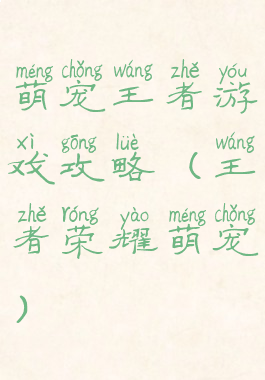 méng chǒng wáng zhě yóu
萌宠王者游
xì gōng lüè wáng
戏攻略(王
zhě róng yào méng chǒng
者荣耀萌宠
)